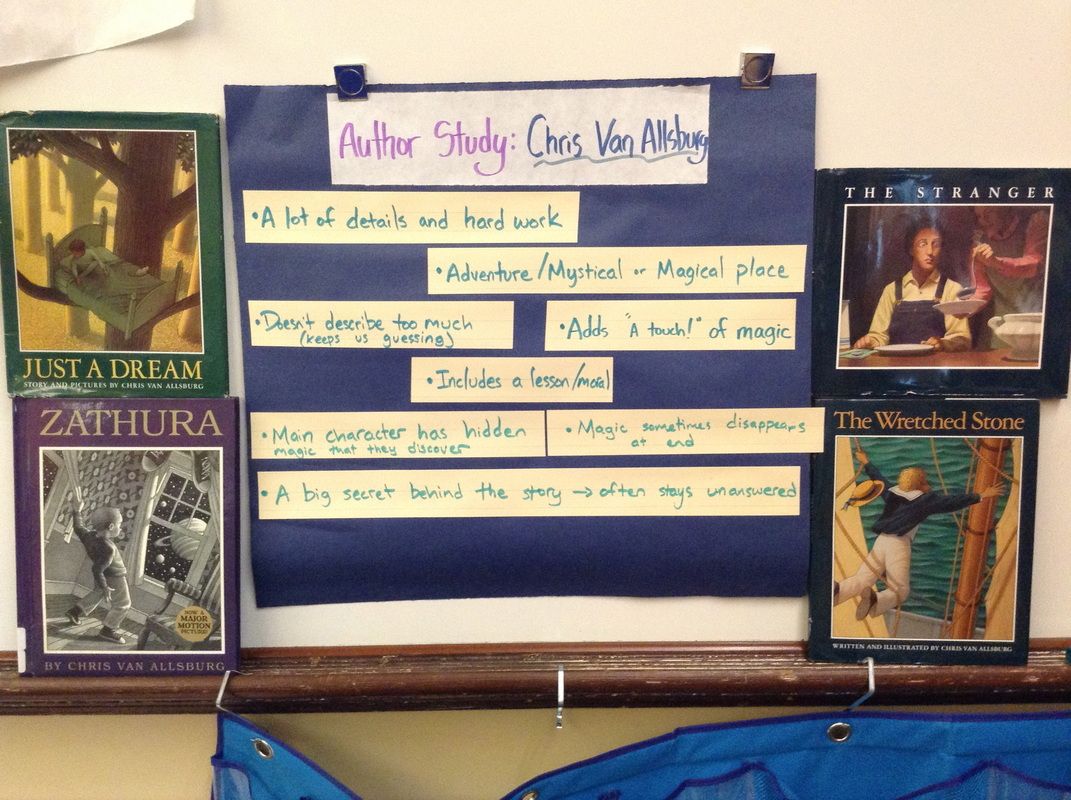 Author Study: Chris Van Allsburg
•A lot of details and hard work
•Adventure/Mystical or Magical place
•Doesn't describe too much
(keeps us guessing)
•Adds "A touch!" of magic
•Includes a lesson/moral
•Main character has hidden
magic that they discover
•Magic sometimes disappears
at end
•A big secret behind the story → often stays unanswered
JUST A DREAM
STORY AND PICTURES BY CHRIS VAN ALLSBURG
ZATHURA
NOW A
MAJOR
MOTION
PICTURE!
BY CHRIS VAN ALLSBURG
THE STRANGER
The Wretched Stone
WRITTEN AND ILLUSTRATED BY CHRIS VAN ALLSBURG